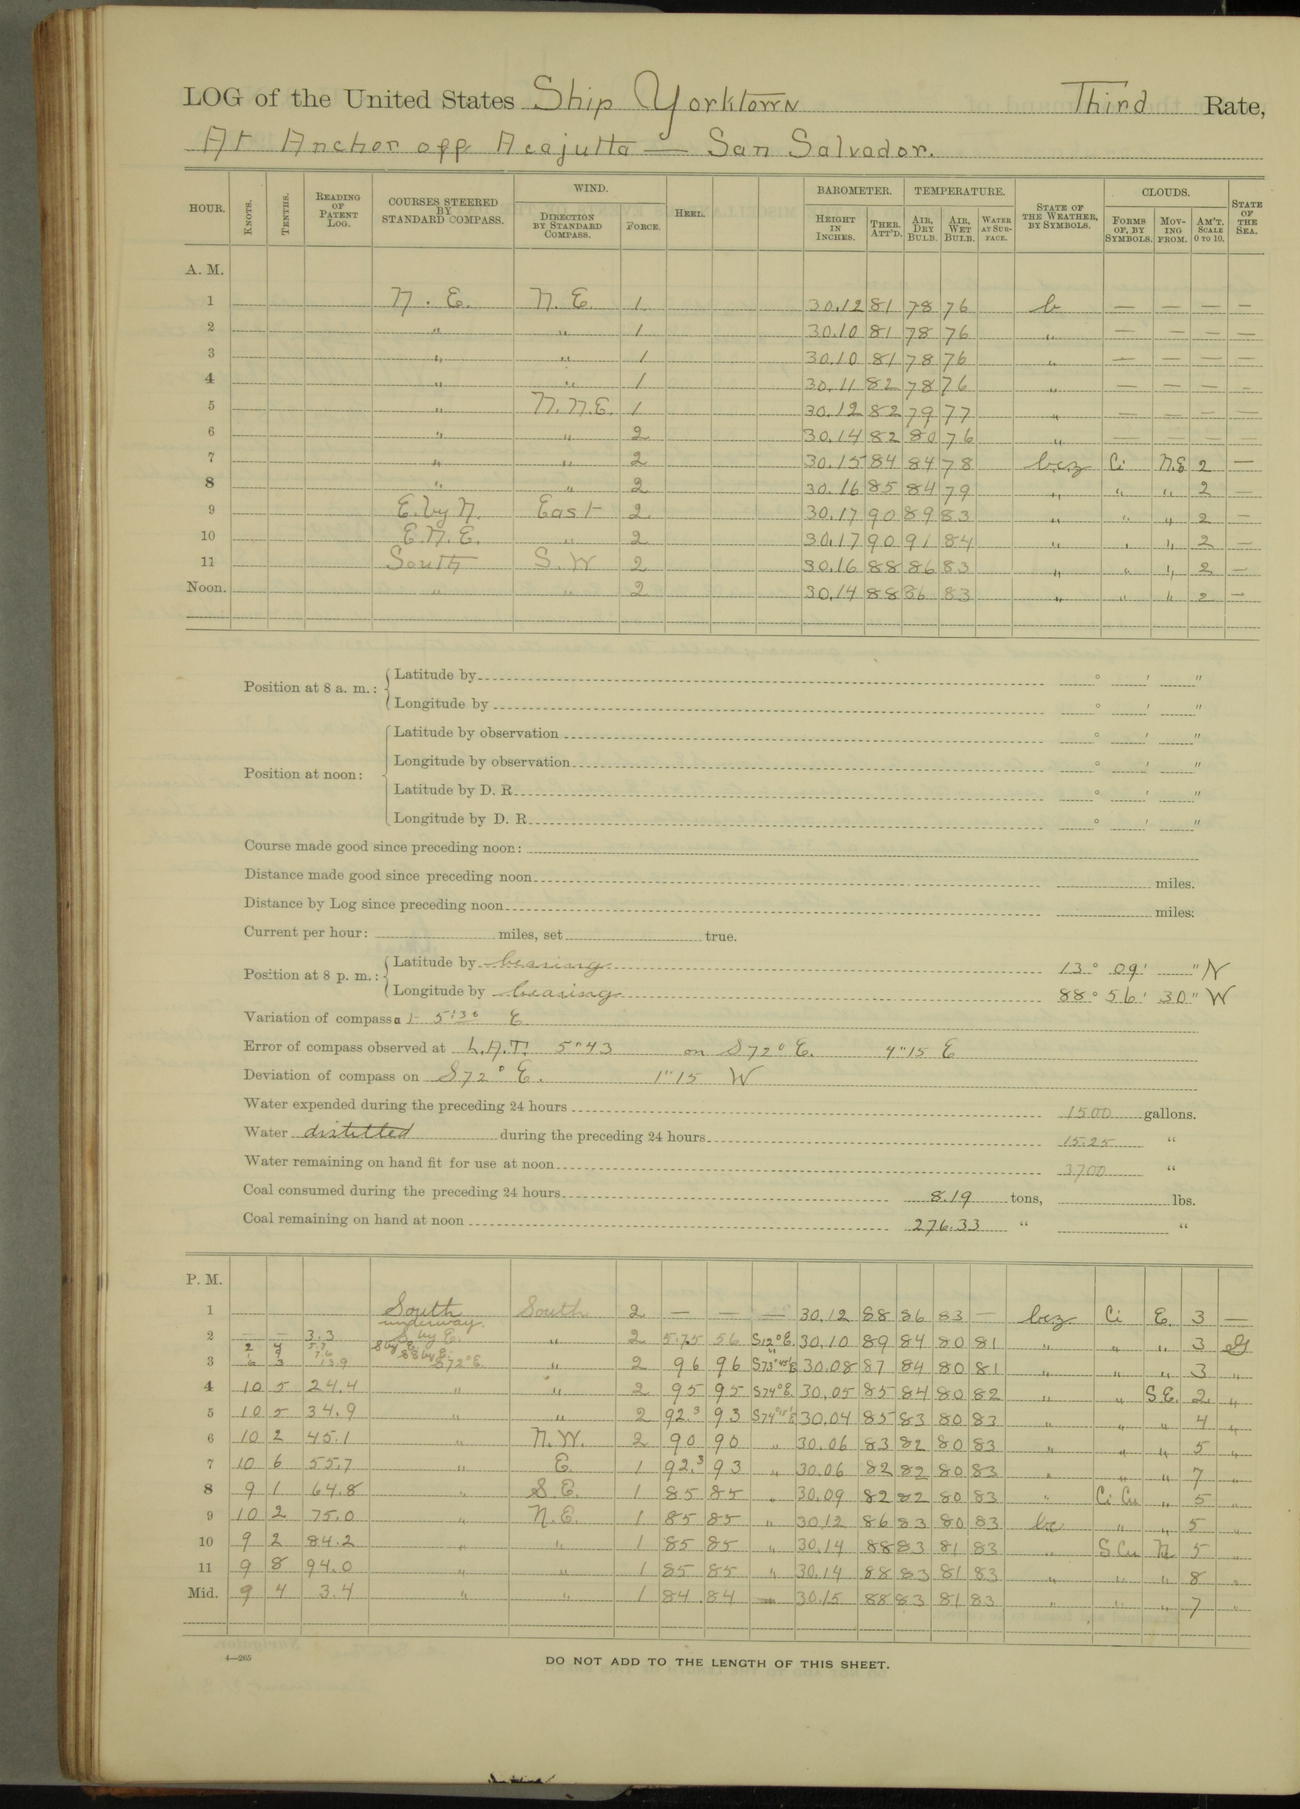 LOG of the United States Ship Yorktown Third Rate,
At Anchor off Acajutta — San Salvador.
HOUR. KNOTS. TENTHS. READING OF PATENT LOG. COURSES STEERED BY STANDARD COMPASS. WIND. DIRECTION BY STANDARD COMPASS. FORCE. HEEL. BAROMETER. HEIGHT IN INCHES. THER. ATT'D. TEMPERATURE. AIR, DRY BULB. AIR, WET BULB. WATER AT SURFACE. STATE OF THE WEATHER, BY SYMBOLS. CLOUDS. FORMS OF, BY SYMBOLS. MOVING FROM. AM'T. SCALE 0 TO 10. STATE OF THE SEA.
A. M.
1 N. E. N. E. 1 30.12 81 78 76 b — — — —
2 " " 1 30.10 81 78 76 " — — — —
3 " " 1 30.10 81 78 76 " — — — —
4 " " 1 30.11 82 78 76 " — — — —
5 " N.N.E. 1 30.12 82 79 77 " — — — —
6 " " 2 30.14 82 80 76 " — — — —
7 " " 2 30.15 84 84 78 bcz Ci N.E 2 —
8 " " 2 30.16 85 84 79 " " " 2 —
9 E. by N. East 2 30.17 90 89 83 " " " 2 —
10 E.N.E. " 2 30.17 90 91 84 " " " 2 —
11 South S.W 2 30.16 88 86 83 " " " 2 —
Noon. " " 2 30.14 88 86 83 " " " 2 —
Position at 8 a. m.: Latitude by ° ' "
Longitude by ° ' "
Position at noon: Latitude by observation ° ' "
Longitude by observation ° ' "
Latitude by D. R. ° ' "
Longitude by D. R. ° ' "
Course made good since preceding noon:
Distance made good since preceding noon miles.
Distance by Log since preceding noon miles.
Current per hour: miles, set true.
Position at 8 p. m.: Latitude by bearing 13° 09' " N
Longitude by bearing 88° 56' 30" W
Variation of compass 5°30 E
Error of compass observed at L.A.T. 5"43 on S72° E. 4"15 E
Deviation of compass on S72° E. 1"15 W
Water expended during the preceding 24 hours 1500 gallons.
Water distilled during the preceding 24 hours 1525 "
Water remaining on hand fit for use at noon 3700 "
Coal consumed during the preceding 24 hours 8.19 tons, lbs.
Coal remaining on hand at noon 276.33 " "
P. M.
1 South South 2 — — — 30.12 88 86 83 — bcz Ci E. 3 —
underway.
2 — — 3.3 S by E. " 2 5.75 56 S12°E. 30.10 89 84 80 81 " " " 3 G
3 6 3 13.9 S72°E. " 2 96 96 30.08 87 84 80 81 " " " 3 "
4 10 5 24.4 " " 2 95 95 S74°E. 30.05 85 84 80 82 " " S.E. 2 "
5 10 5 34.9 " " 2 92.3 93 30.04 85 83 80 83 " " " 4 "
6 10 2 45.1 " N.W. 2 90 90 " 30.06 83 82 80 83 " " " 5 "
7 10 6 55.7 " E. 1 92.3 93 " 30.06 82 82 80 83 " " " 7 "
8 9 1 64.8 " S.E. 1 85 85 " 30.09 82 82 80 83 " Ci Cu " 5 "
9 10 2 75.0 " N.E. 1 85 85 " 30.12 86 83 80 83 bc " " 5 "
10 9 2 84.2 " " 1 85 85 " 30.14 88 83 81 83 " S.Cu N 5 "
11 9 8 94.0 " " 1 85 85 " 30.14 88 83 81 83 " " " 8 "
Mid. 9 4 3.4 " " 1 84 84 — 30.15 88 83 81 83 " " " 7 "
4—265
DO NOT ADD TO THE LENGTH OF THIS SHEET.